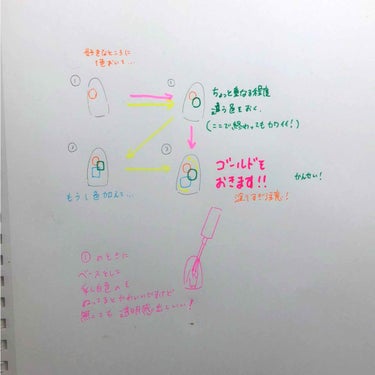 好きなところに
1色おいて…
①
①
ちょっと重なる程度
違う色をおく。
(ここで終わってもカワイイ!)
②
③
もう1色加えて…
ゴールドを
おきます!!
かんせい!
①のときに
ベースとして
乳白色のを
ぬってるとかわいいですけど
無くても透明感出しいい!